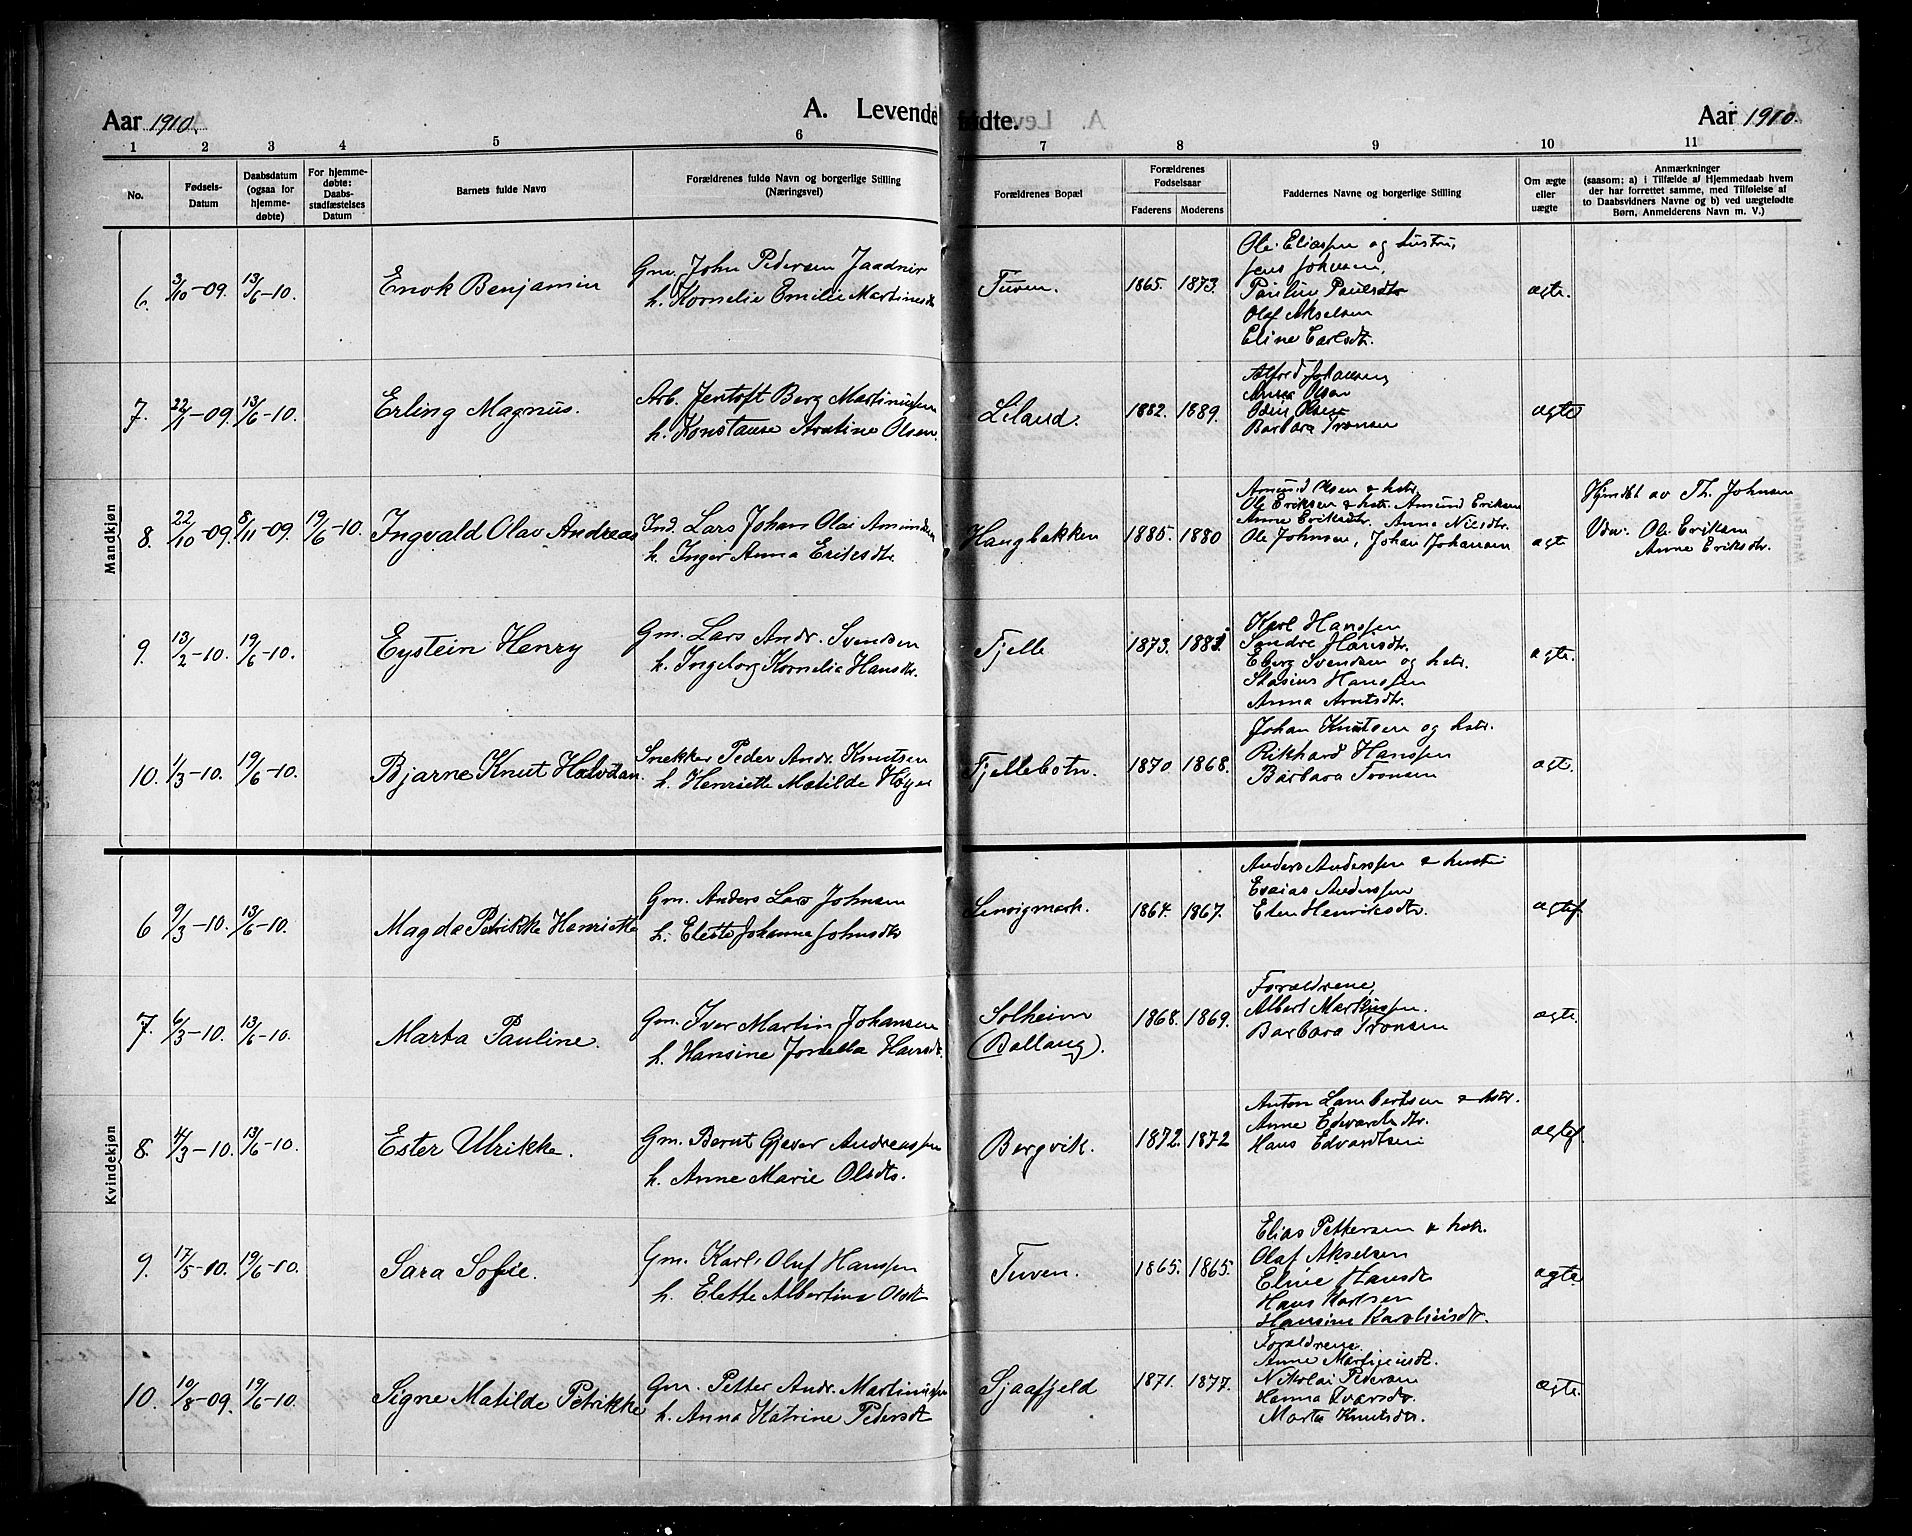 Aar 1910. A. Levendefødte. Aar 1910.
1 2 3 4 5 6 7 8 9 10 11
No.
Fødsels-
Datum
Daabsdatum
(ogsaa for
hjemme-
døbte)
For hjemme-
døbte:
Daabs-
stadfæstelses
Datum
Barnets fulde Navn
Forældrenes fulde Navn og borgerlige Stilling
(Næringsvei)
Forældrenes Bopæl
Forældrenes
Fødselsaar
Faderens Moderens
Faddernes Navne og borgerlige Stilling
Om ægte
eller
uægte
Anmærkninger
(saasom: a) i Tilfælde af Hjemmedaab hvem
der har forrettet samme, med Tilføielse af
to Daabsvidners Navne og b) ved uægtefødte
Børn, Anmelderens Navn m. V.)
Mandkjøn
6. 3/10-09. 13/6-10. Enok Benjamin
Gm. John Pedersen Jaadnir
h. Kornelie Emilie Martinsdtr
Tuven. 1865. 1873.
Ole Eliassen og hustru,
Jens Johnsen,
Pauline Paulsdtr
Olaf Akselsen
Eline Carlsdtr.
ægte.
7. 22/1-09. 13/6-10. Erling Magnus.
Arb. Jentoft Berg Martinussen
h. Konstanse Arntine Olsen.
Liland. 1882. 1889.
Alfred Johansen,
Anna Olsen
Odin Olsen
Barbara Tronsen
ægte
8. 22/10-09. 8/11-09. 19/6-10. Ingvald Olav Andreas
Ind. Lars Johan Olai Amundsen
h. Inger Anna Eriksdtr.
Haugbakken 1885. 1880
Amund Olsen & hstr.
Ole Eriksen & hstr. Amund Eriksen
Anne Eriksdtr. Anna Nilsdtr.
Ole Johnsen, Johan Johansen
ægte
Hjmdbt av Th. Johnsen
Vdn: Ole Eriksen
Anne Eriksdtr.
9. 13/2-10. 19/6-10. Eystein Henry
Gm. Lars Andr. Svendsen
h. Ingeborg Kornelia Hansdtr.
Fjelle 1873. 1881
Karl Hanssen
Sendre Hansdtr.
Eberg Svendsen og hstr.
Stasius Hanssen
Anna Arntsdtr.
ægte.
10. 1/3-10. 19/6-10. Bjarne Knut Halvdan.
Snekker Peder Andr. Knutsen
h. Henriette Matilde Høyer
Fjellebotn. 1870 1868.
Johan Knutsen og hstr.
Rikhard Hanssen
Barbara Tronsen
ægte.
Kvindekjøn
6 9/3-10. 13/6-10. Magda Petrikke Henriette
Gm. Anders Lars Johnsen
h. Elette Johanna Johnsdtr
Lenvigmark. 1864. 1867.
Anders Anderssen & hustru
Esaias Anderssen
Elen Henriksdtr.
ægtef.
7. 6/3-10. 13/6-10. Marta Pauline.
Gm. Iver Martin Johansen
h. Hansine Jonella Hansdtr.
Solheim
(Ballang). 1868. 1869.
Forældrene,
Albert Markussen.
Barbara Tronsen
ægte.
8. 4/3-10. 13/6-10. Ester Ulrikke.
Gm. Bernt Gjever Andreassen
h. Anne Marie Olsdtr.
Bergvik. 1872. 1872
Anton Lambertsen & hstr.
Anne Edvardsdtr.
Hans Edvardtsen
ægtef.
9. 17/5-10. 19/6-10. Sara Sofie.
Gm. Karl Oluf Hanssen
h. Elette Albertine Olsdtr
Tuven. 1865. 1865.
Elias Pettersen & hstr.
Olaf Akselsen
Eline Hansdtr
Hans Karlsen
Hansine Karolinsdtr.
ægte.
10. 10/8-09. 19/6-10. Signe Matilde Petrikke
Gm. Petter Andr. Martinussen
h. Anna Katrine Pedersdtr
Sjaafjeld 1871. 1877.
Forældrene
Anne Martinusdtr.
Nikolai Pedersen
Hanna Ivarsdtr
Marta Knutsdtr.
ægte.